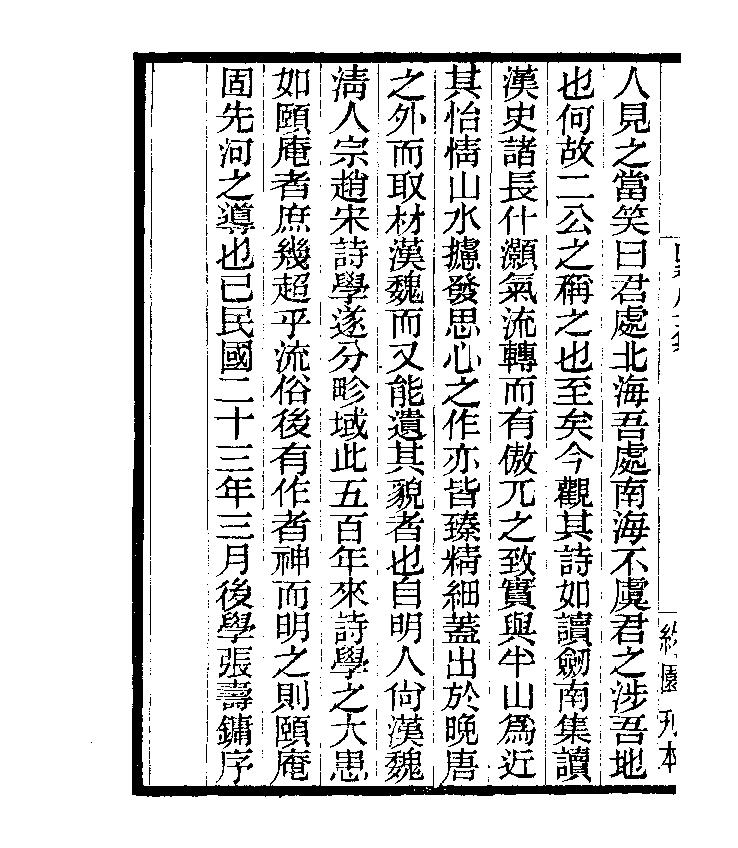 約園刊本
人見之當笑曰君處北海吾處南海不虞君之涉吾地
也何故二公之稱之也至矣今觀其詩如讀劒南集讀
漢史諸長什灝氣流轉而有傲兀之致實與半山爲近
其怡情山水攄發思心之作亦皆臻精細蓋出於晚唐
之外而取材漢魏而又能遺其貌者也自明人尙漢魏
淸人宗趙宋詩學遂分畛域此五百年來詩學之大患
如頤庵者庶幾超乎流俗後有作者神而明之則頤庵
固先河之導也已民國二十三年三月後學張壽鏞序